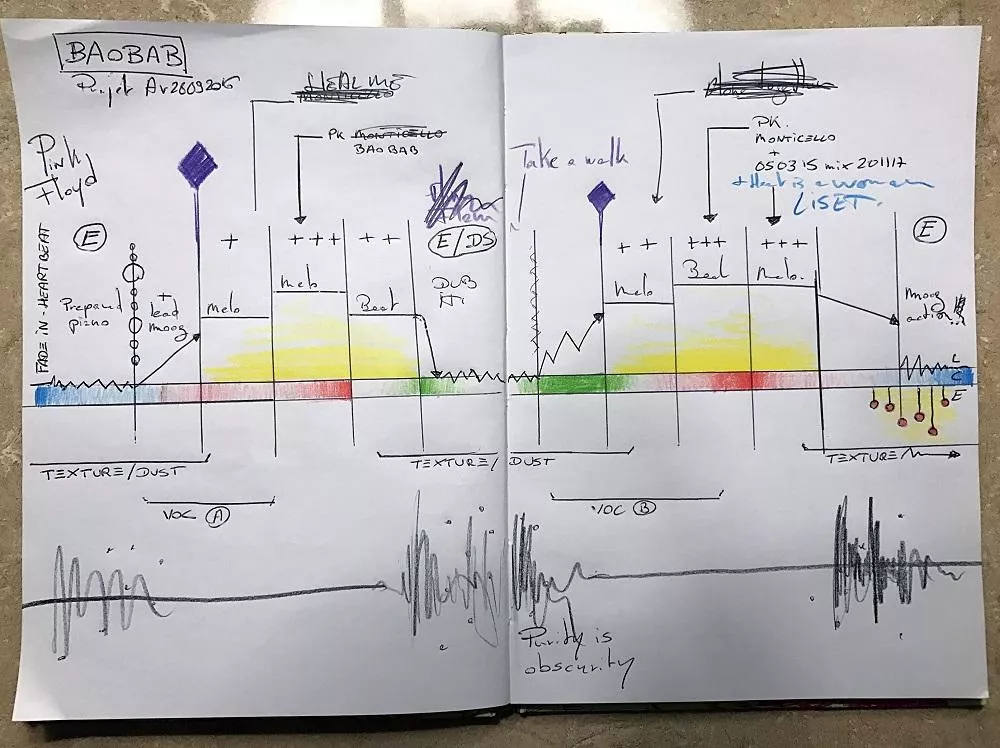 BAOBAB
Projet Av260920I6
HEAL ME
PK MONTICELLO
BAOBAB
Pink
Floyd
FADE IN - HEARTBEAT
E
Prepared
piano
+
lead
moog
+
Melo
+++
Melo
++
Beat
E/DS
DUB
TEXTURE/DUST
VOC A
TEXTURE/
Take a walk
PK.
MONTICELLO
+
050315 mix 201117
+ Heart is a woman
LISET.
++
Melo
+++
Beat
+++
Melo.
E
Moog
action
L
C
E
DUST
TEXTURE/
VOC B
Purity is
obscurity